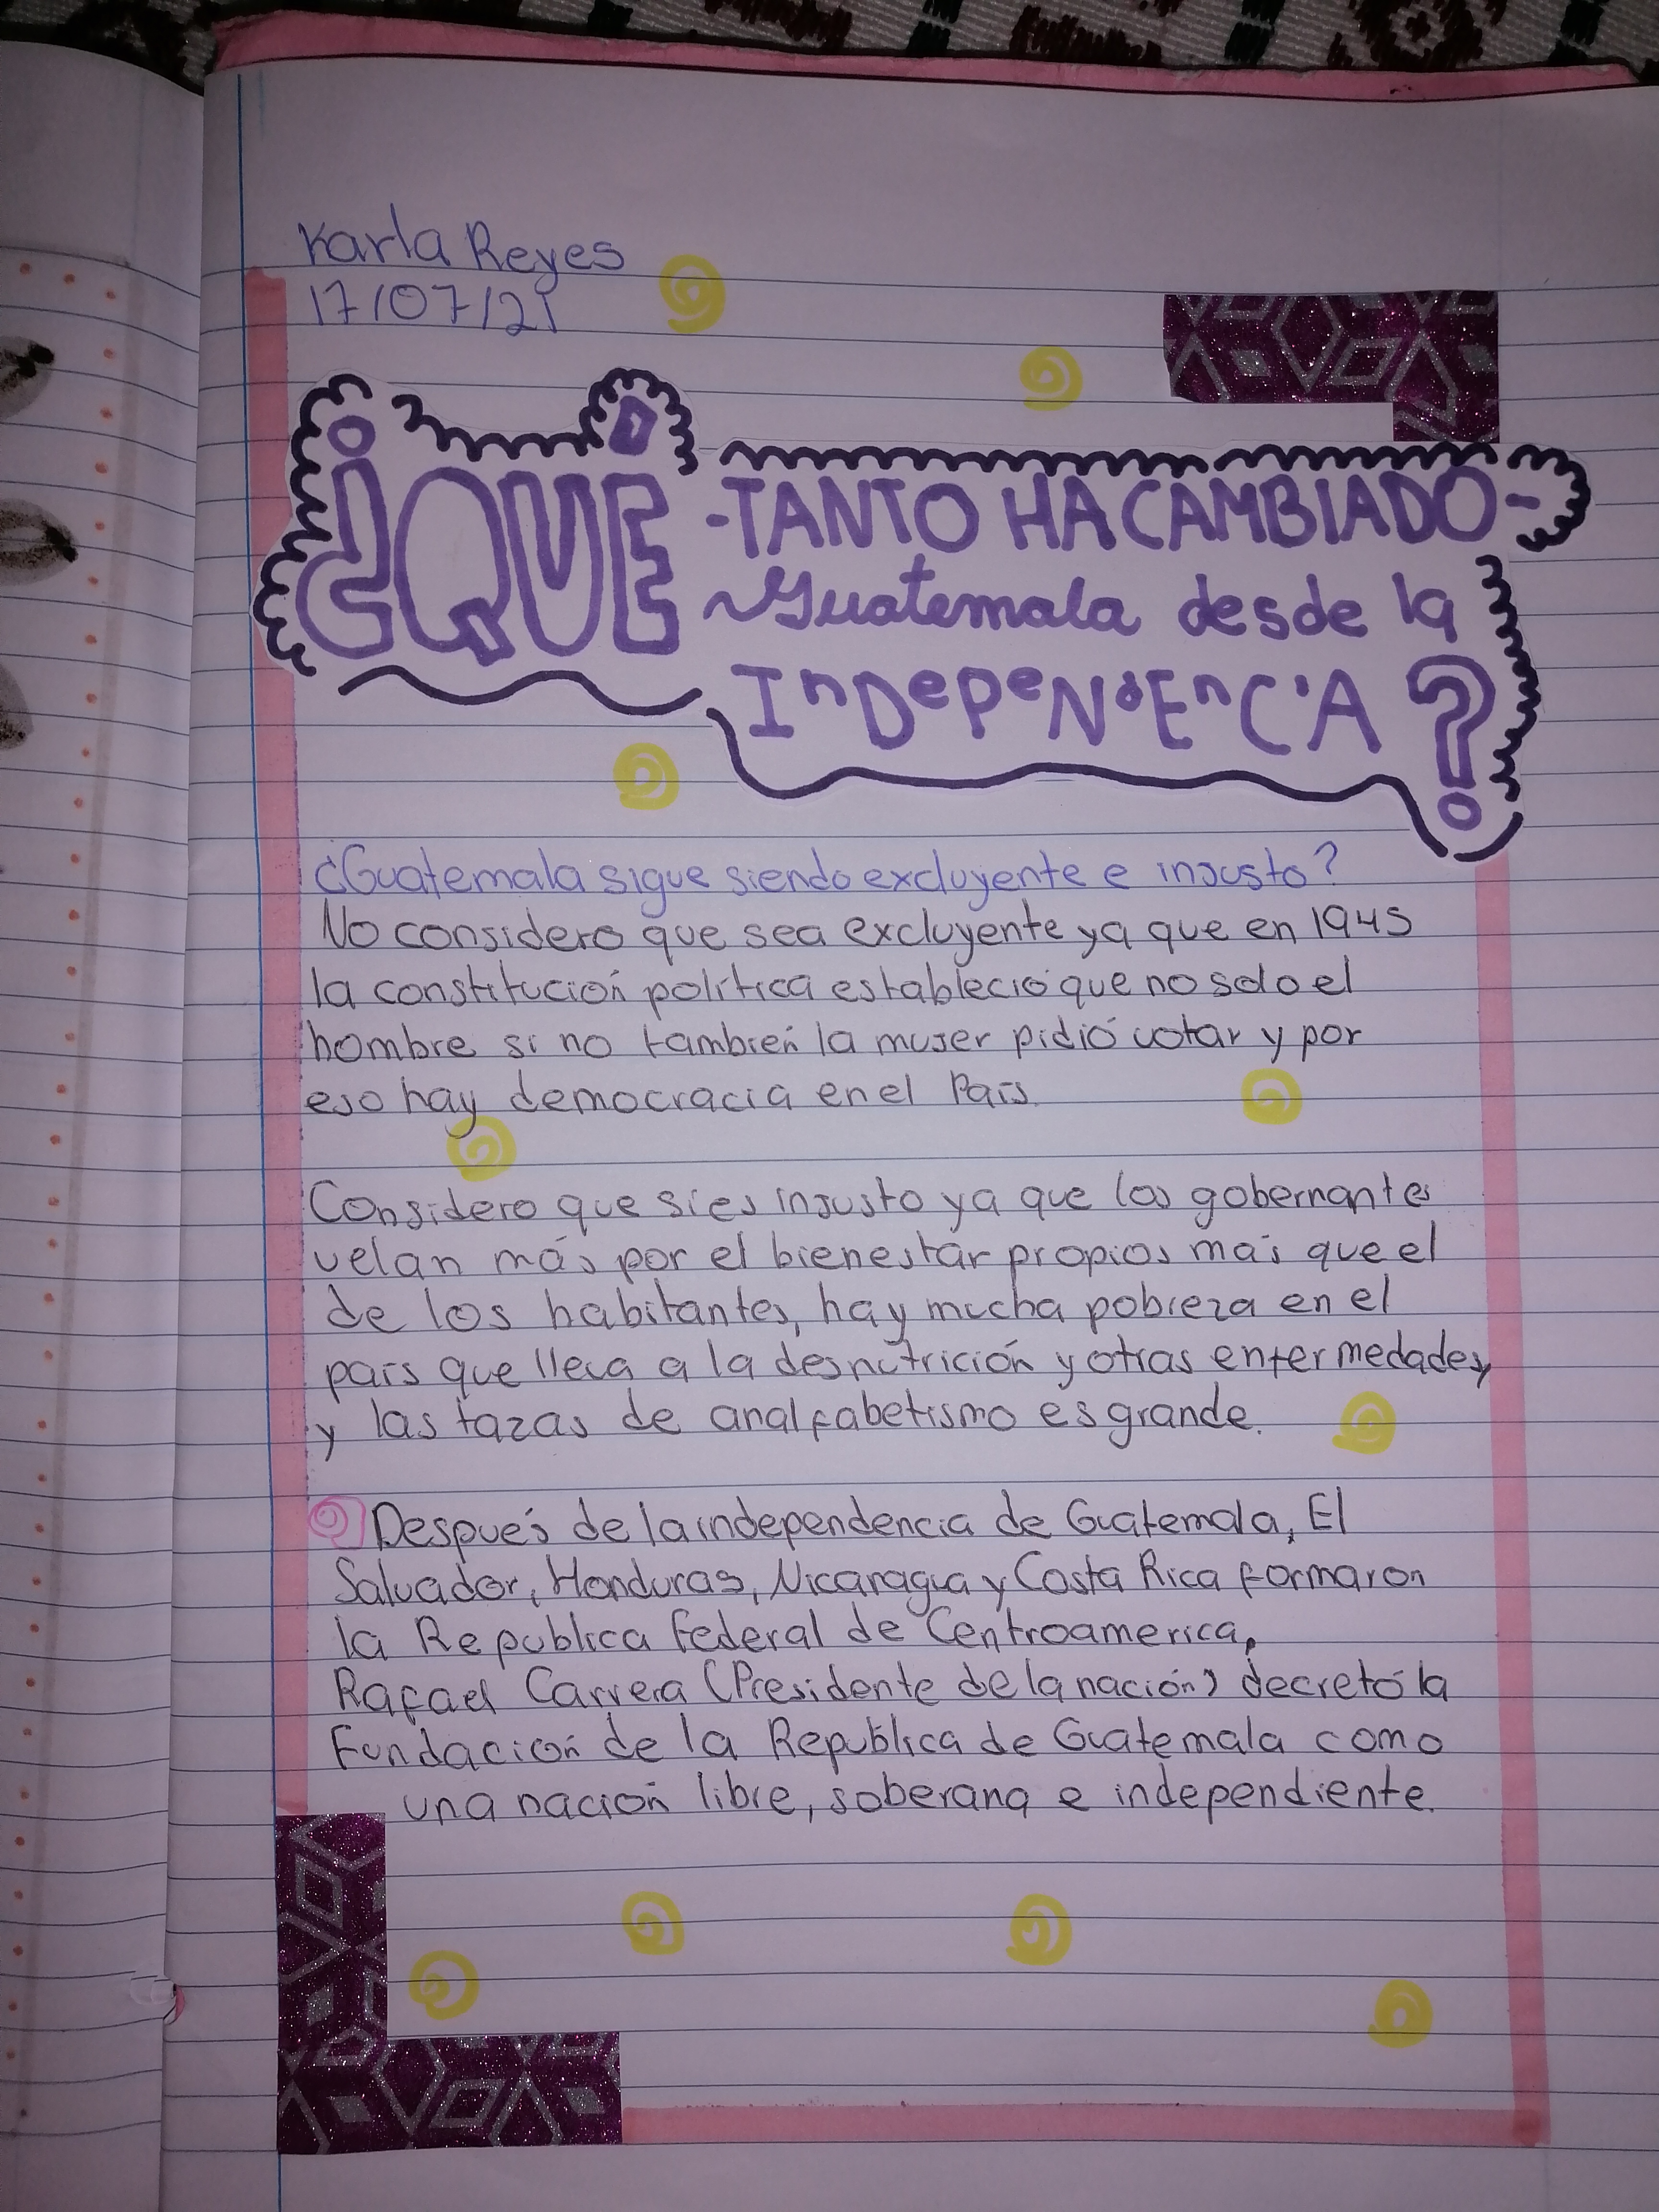 Karla Reyes
17/07/21
¿QUÉ -TANTO HA CAMBIADO-
Guatemala desde la
InDePeNdEnCiA?
¿Guatemala sigue siendo excluyente e injusto?
No considero que sea excluyente ya que en 1945
la constitución política estableció que no solo el
hombre si no también la mujer pidió votar y por
eso hay democracia en el País.
Considero que si es injusto ya que los gobernantes
velan más por el bienestar propios más que el
de los habitantes, hay mucha pobreza en el
país que lleva a la desnutrición y otras enfermedades
y las tazas de analfabetismo es grande.
Después de la independencia de Guatemala, El
Salvador, Honduras, Nicaragua y Costa Rica formaron
la Republica Federal de Centroamerica,
Rafael Carrera (Presidente de la nación) decretó la
Fundación de la República de Guatemala como
una nación libre, soberana e independiente.